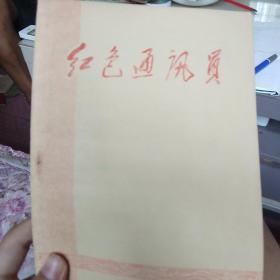 红色通讯员